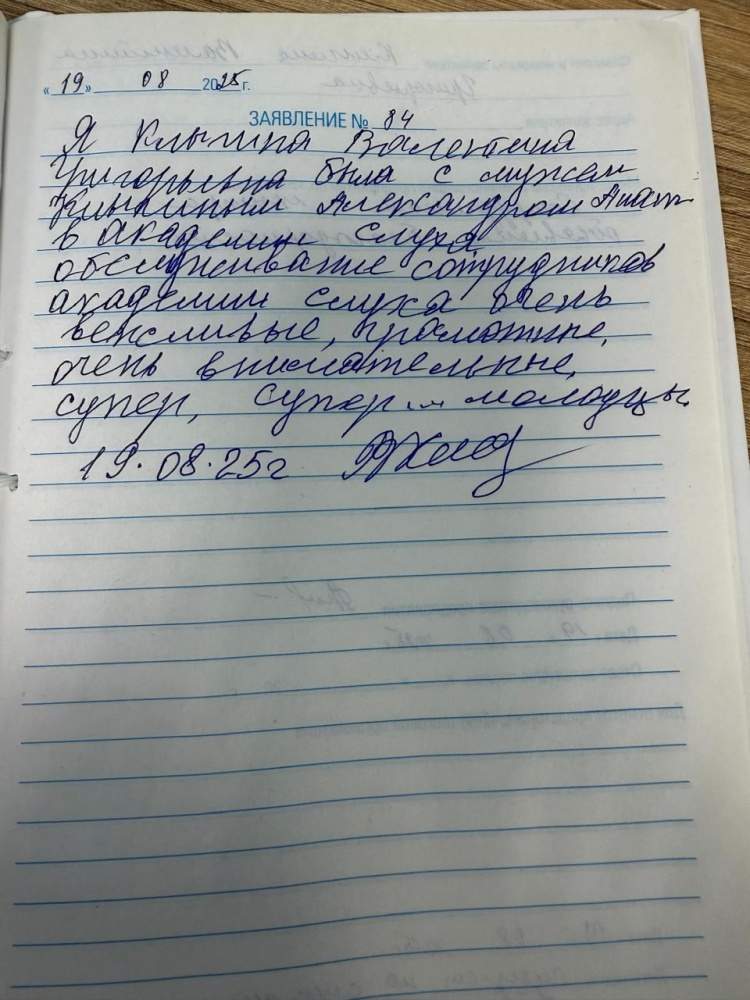 «19» 08 2025 г.
ЗАЯВЛЕНИЕ № 84
Я Клыгина Валентина
Григорьевна была с мужем
Александром Анат
в академии слуха
обслуживание сотрудников
академии слуха очень
вежливые, грамотные,
очень внимательные,
супер, супер молодцы.
19.08.25г